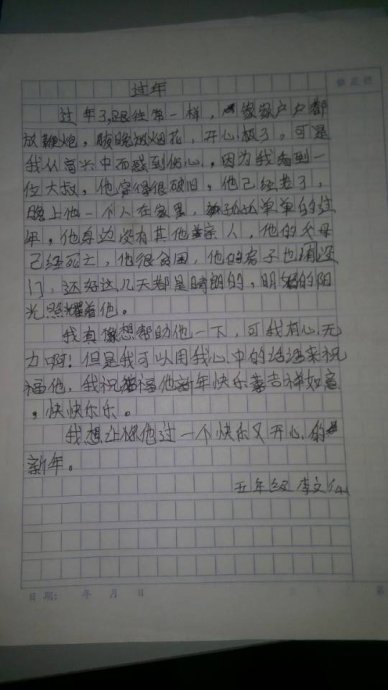 过年
过年了,跟往常一样,家家户户都
放鞭炮,放烟花,开心极了。可是
我从高兴中而感到伤心,因为我看到一
位大叔,他穿得很破旧,他已经老了,
晚上他一个人在家里,孤孤单单的过
年,他身边没有其他亲人,他的父母
已经死亡,他很贫困,他的房子也没
门,还好这几天都是晴朗的,明媚的阳
光照耀着他。
我真像想帮助他一下,可我有心无
力啊!但是我可以用我心中的话语来祝
福他,我祝福他新年快乐吉祥如意
,快快乐乐。
我想让他过一个快乐又开心的
新年。
五年级 李文
日期: 年 月 日